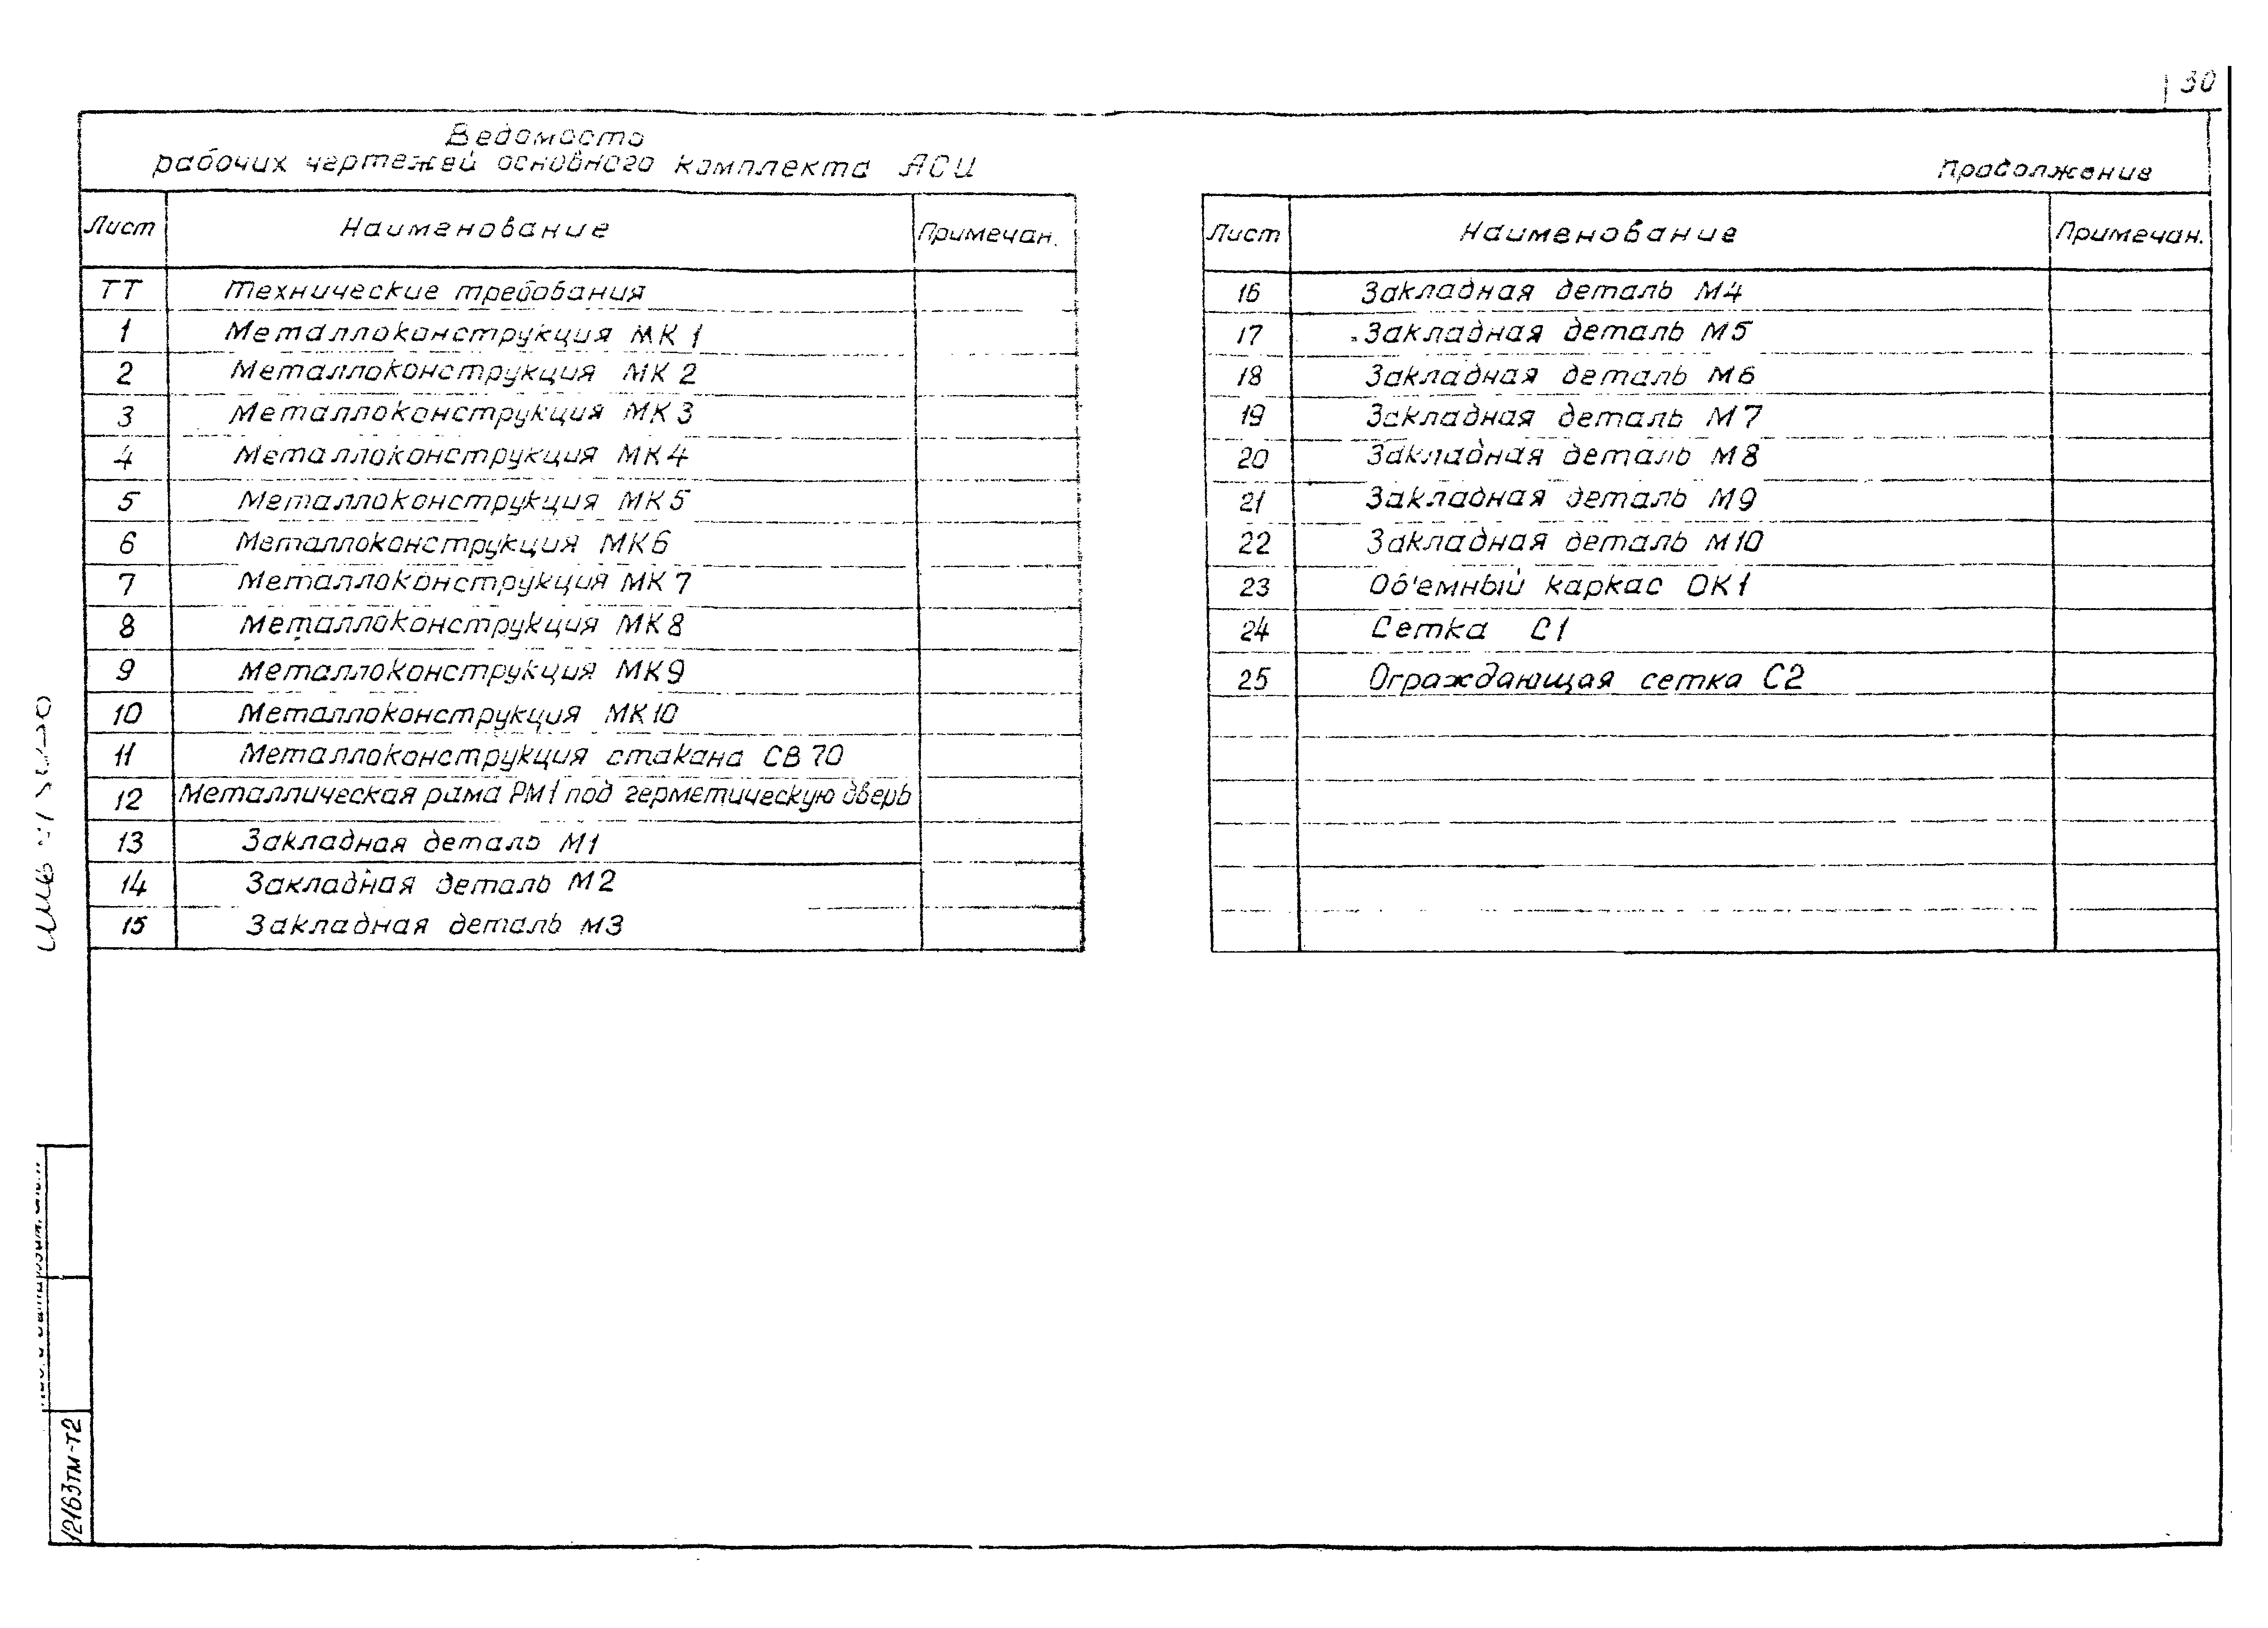 30
Ведомость
рабочих чертежей основного комплекта АСИ
Продолжение
Лист Наименование Примечан.
ТТ Технические требования
1 Металлоконструкция МК 1
2 Металлоконструкция МК 2
3 Металлоконструкция МК 3
4 Металлоконструкция МК4
5 Металлоконструкция МК5
6 Металлоконструкция МК6
7 Металлоконструкция МК 7
8 Металлоконструкция МК8
9 Металлоконструкция МК9
10 Металлоконструкция МК10
11 Металлоконструкция стакана СВ 70
12 Металлическая рама РМ1 под герметическую дверь
13 Закладная деталь М1
14 Закладная деталь М2
15 Закладная деталь М3
Лист Наименование Примечан.
16 Закладная деталь М4
17 Закладная деталь М5
18 Закладная деталь М6
19 Закладная деталь М7
20 Закладная деталь М8
21 Закладная деталь М9
22 Закладная деталь М10
23 Об'емный каркас ОК1
24 Сетка С1
25 Ограждающая сетка С2
12163тм-т2